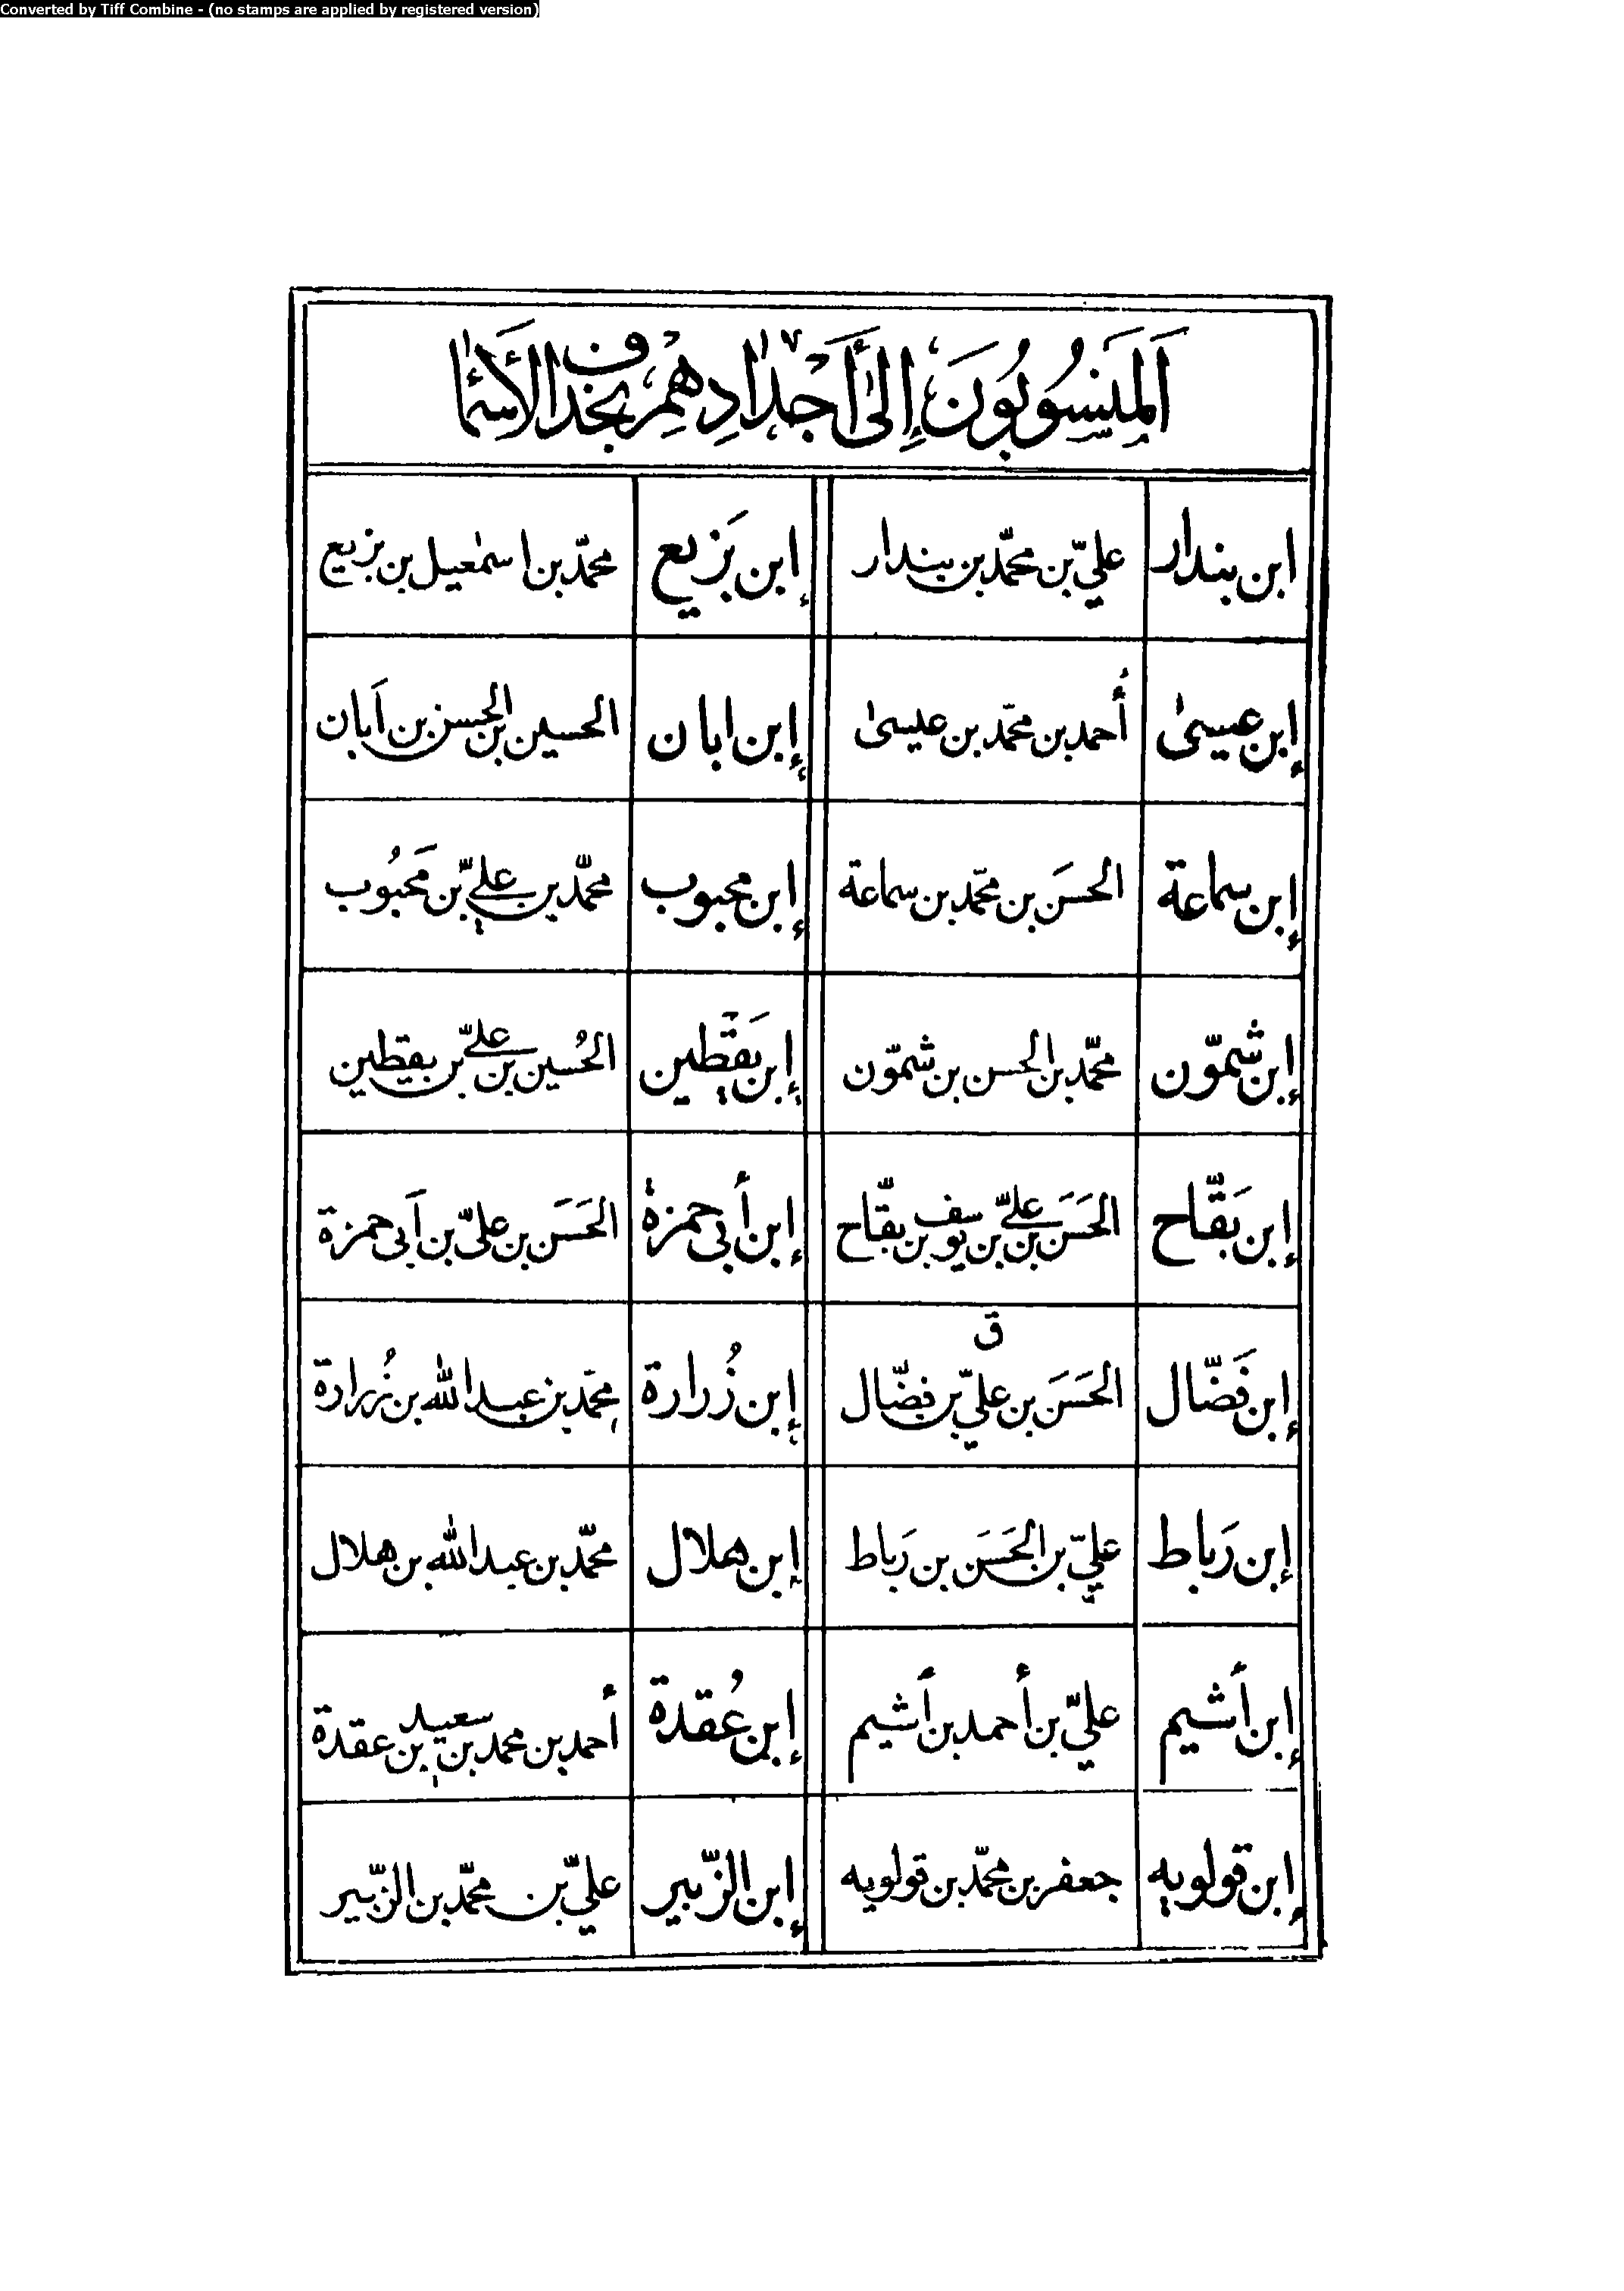 Converted by Tiff Combine - (no stamps are applied by registered version)
اَلْمَنْسُوبُونَ إِلىٰ أَجْدٰادِهِمْ بحذف الأَسْمٰا
ابن بندار علىّ بن محمّد بن بندار إبن بَزيع محمّد بن اسمٰعيل بن بزيع
إبن عيسىٰ أُحمد بن محمّد بن عيسىٰ إبن ابان الحسين بن الحسن بن اَبان
إبن سماعة الحسَن بن محمّد بن سماعة إبن محبوب محمّد بن علىّ بن مَحبُوب
إبن شمّون محمّد بن الحسن بن شمّون إبن يَقْطين الحُسين بن علىّ بن يقطين
إبن بَقّاح الحَسَن بن علىّ بن يوسف بن بقّاح إبن أبى حمزة الحَسَن بن علىّ بن اَبى حمزة
ق
إبن فَضّال الحَسَن بن علىّ بن فضّال إبن زُرارة محمّد بن عبد الله بن زُرارة
إبن رَباط علىّ بن الحَسَن بن رَباط إبن هلال محمّد بن عبد الله بن هلال
إبن أَشيم علىّ بن أحمد بن أَشيم إبن عُقدة أحمد بن محمد بن سعيد بن عقدة
إبن قولويه جعفر بن محمّد بن قولويه إبن الزّبير علىّ بن محمّد بن الزّبير